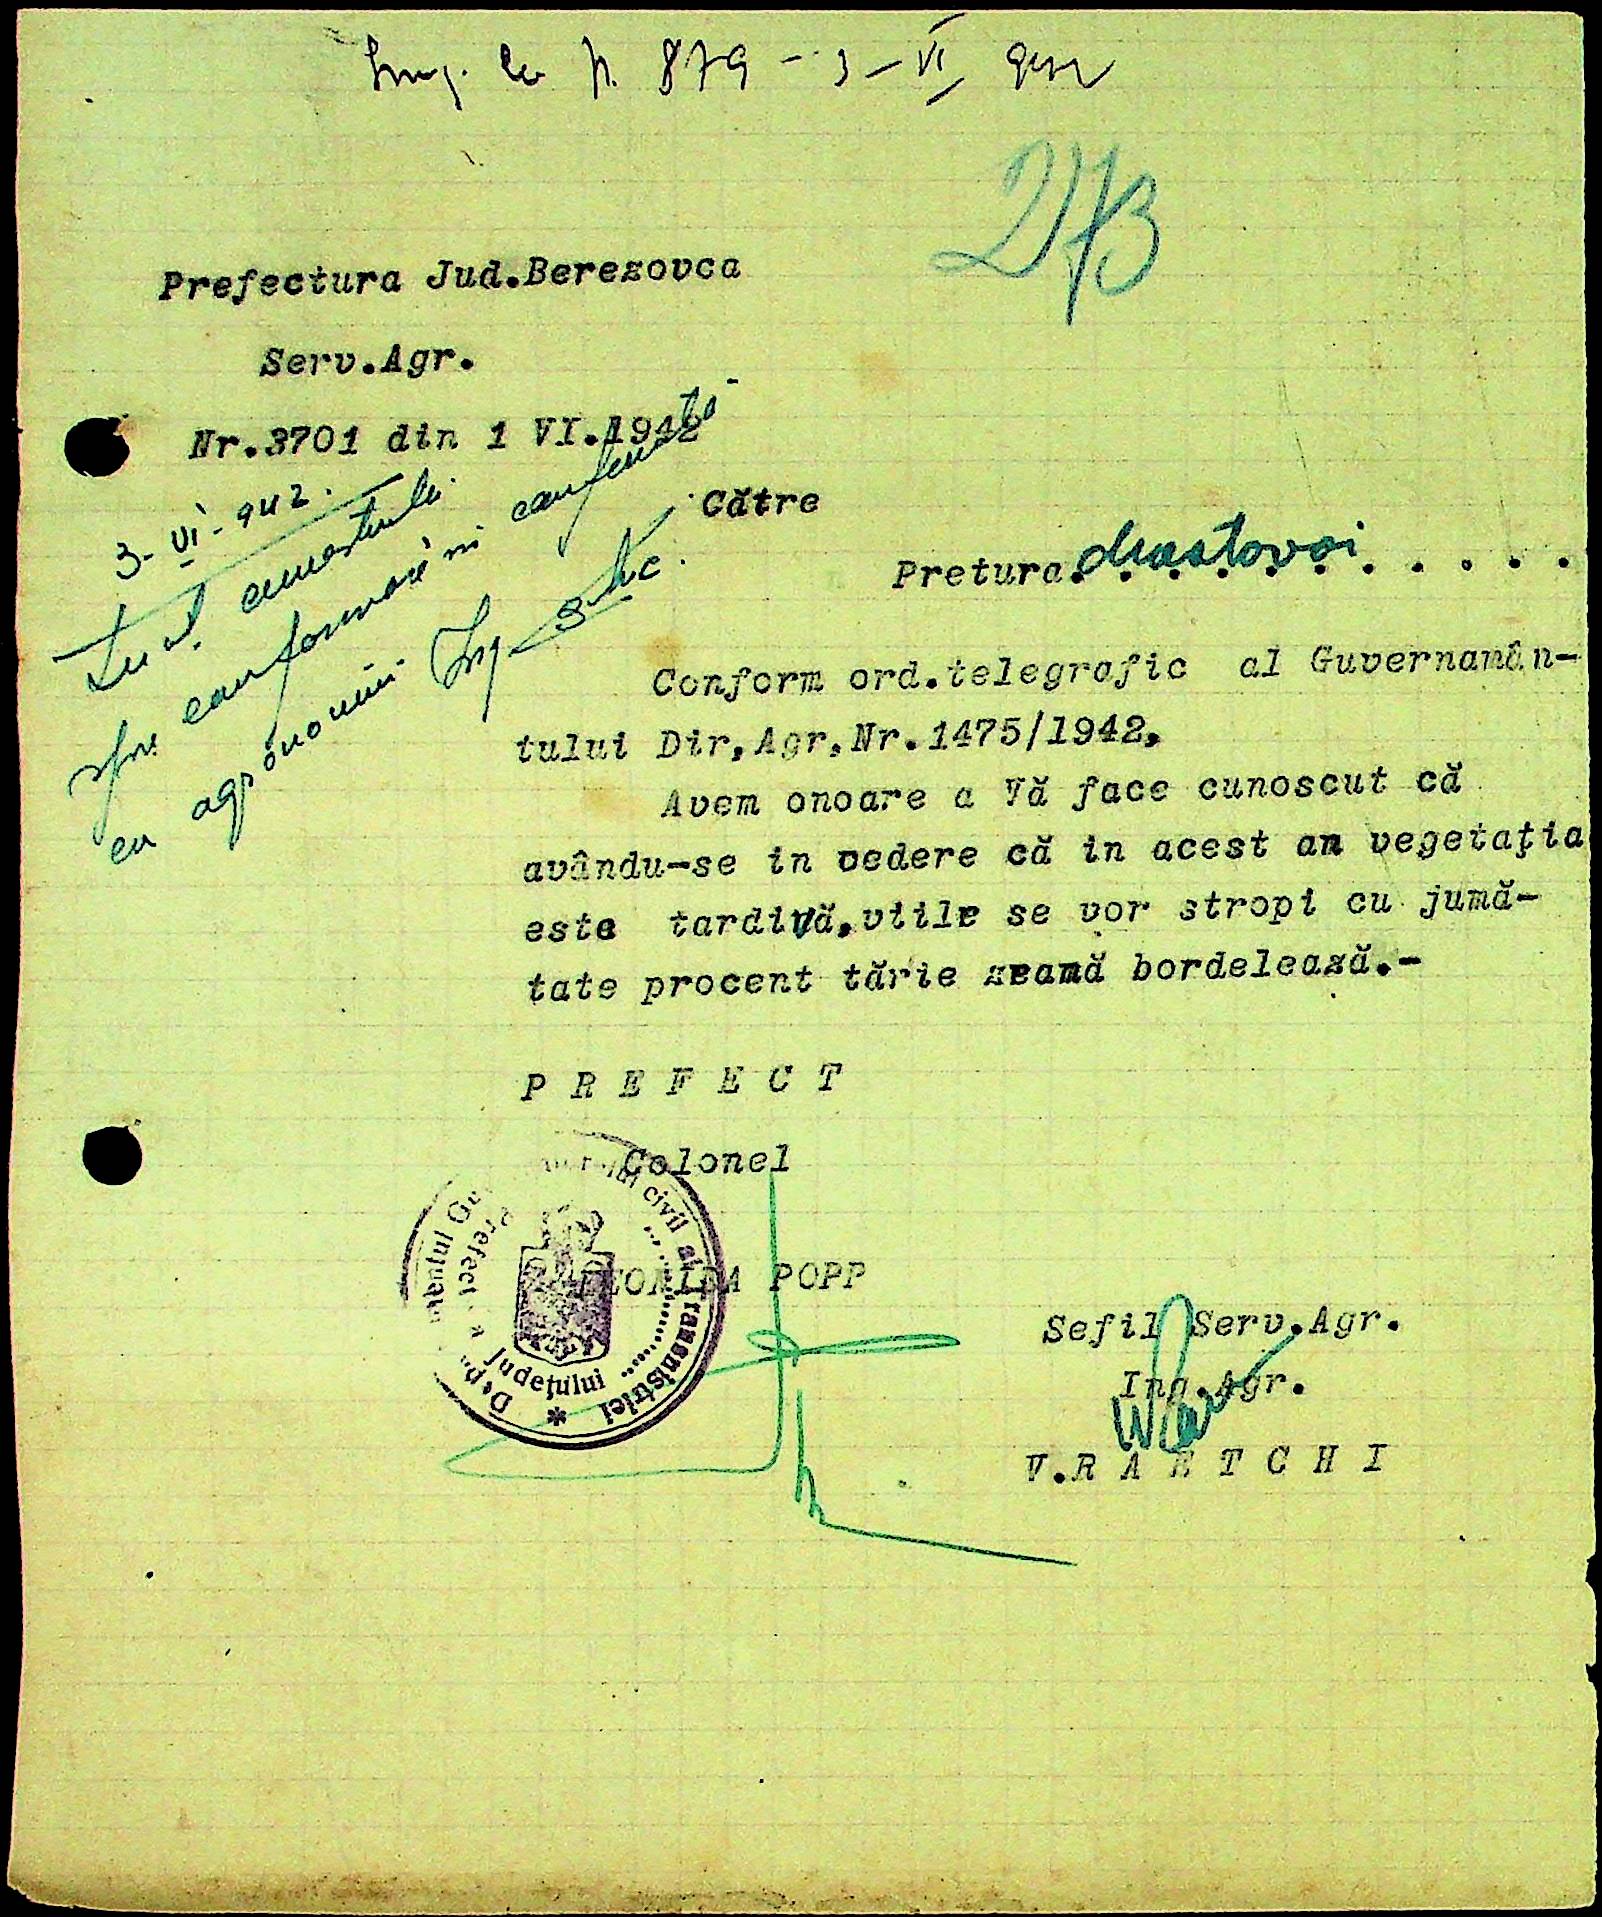 Inreg. la N. 879 - 3 - VI 942
273
Prefectura Jud.Berezovca
Serv.Agr.
Nr.3701 din 1 VI.1942
3-VI-942.
conformare in conferinta
cu agronomii
Către
Pretura Mostovoi . . . . .
Conform ord.telegrafic al Guvernamân-
tului Dir,Agr,Nr.1475/1942,
Avem onoare a Vă face cunoscut că
avându-se in vedere că in acest an vegetaţia
este tardivă,viile se vor stropi cu jumă-
tate procent tărie zeamă bordelează.-
P R E F E C T
Colonel
LEONIDA POPP
civil al Transnistriei
Județului
Sefil Serv.Agr.
Ing.Agr.
V.R A E T C H I